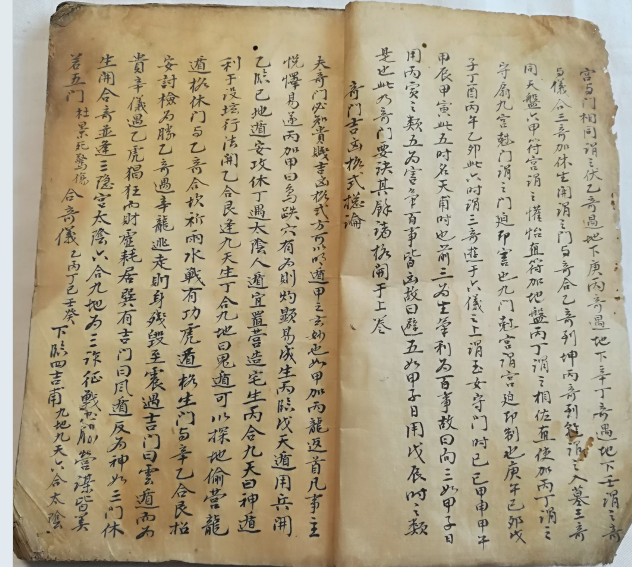 宫与门相同谓之伏乙奇遇地下庚丙奇遇地下辛丁奇遇地下壬谓之奇
与仪合三奇加休生開谓之门与奇合乙奇到坤丙奇到谓之入墓三奇
同天盤六甲符宫谓之懽怡直符加地盤丙丁谓之相佐直使加丙丁谓之
守扇九宫尅门谓之门迫即害也九门尅宫谓宫迫即制也庚午己卯戊
子丁酉丙午乙卯此六时谓三奇遊于六仪之上谓玉女守门时己巳甲申甲午
甲辰甲寅此五时名天甫时也前三为生第利为百事故曰向三如甲子日
用丙寅之类五为害第百事皆凶故曰避五如甲子日用戊辰时之类
是也此乃奇门要诀其餘諸格開于上卷
奇门吉凶格式總论
夫奇门必知貴賎吉凶格式方可以明遁甲之玄妙也如甲加丙龍返首凡事主
悦懌易遂丙加甲曰鳥跌穴有为則灼顯易成生丙臨戊天遁用兵開
乙臨己地遁安攻休丁遇太陰人遁宜置营造宅生丙合九天曰神遁
利于設坛行法開乙合艮逢九天生丁合九地曰鬼遁可以探地偷营龍
遁格休门与乙奇合坎祈雨水戰有功虎遁格生门与辛乙合艮招
安討檢为勝乙奇遇辛龍逃走則身殘毁至震遇吉门曰雲遁而为
貴辛儀遇乙虎猖狂而財虚耗居巽有吉门曰風遁反为神如三门休
生開合奇並逢三隐宫太陰六合九地为三詐征戰营谋皆美
若五门杜景死驚傷合奇儀乙丙丁己壬癸下臨四吉甫九地九天六合太陰